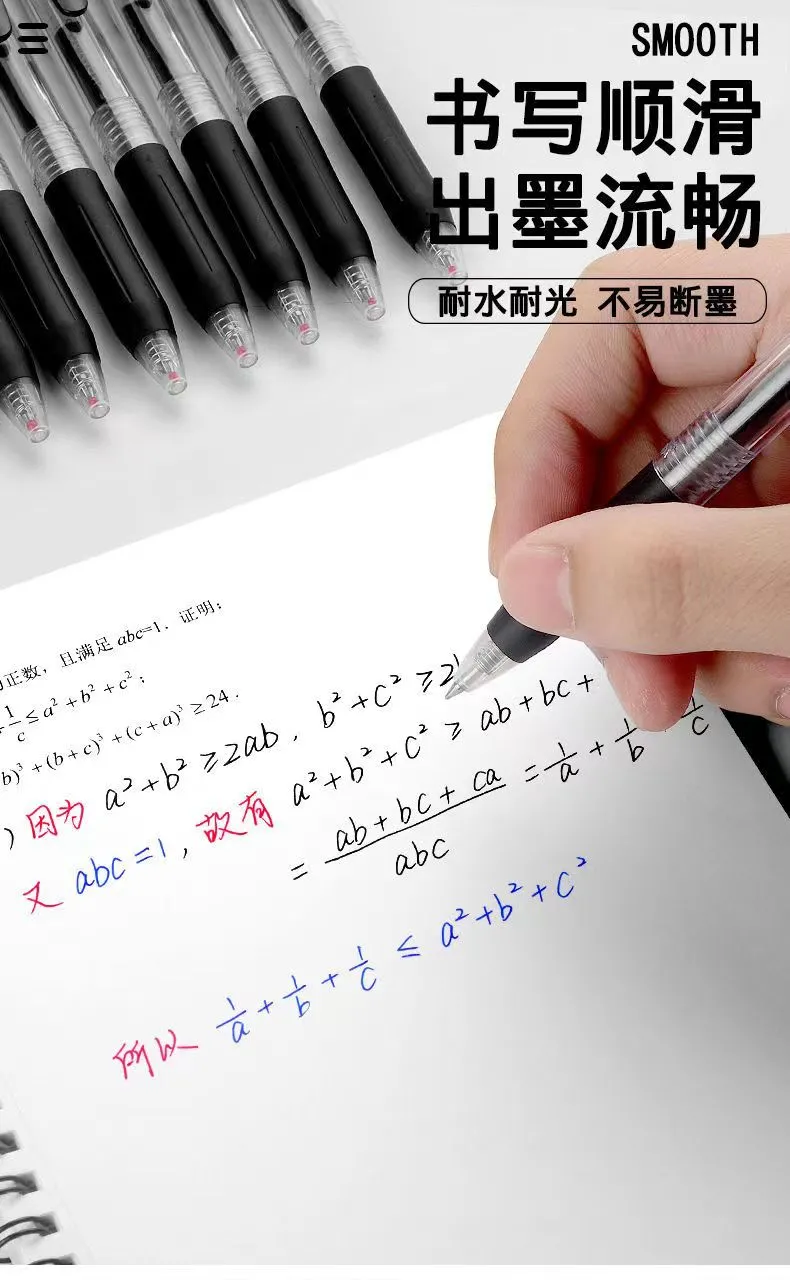 SMOOTH
书写顺滑
出墨流畅
耐水耐光 不易断墨
正数，且满足 abc=1．证明：
1/c ≤ a² + b² + c²；
b)³ + (b + c)³ + (c + a)³ ≥ 24．
) 因为 a² + b² ≥ 2ab . b² + c² ≥ 2
又 abc = 1 , 故有 a² + b² + c² ≥ ab + bc +
= (ab + bc + ca)/abc = 1/a + 1/b 1/c
所以 1/a + 1/b + 1/c ≤ a² + b² + c²